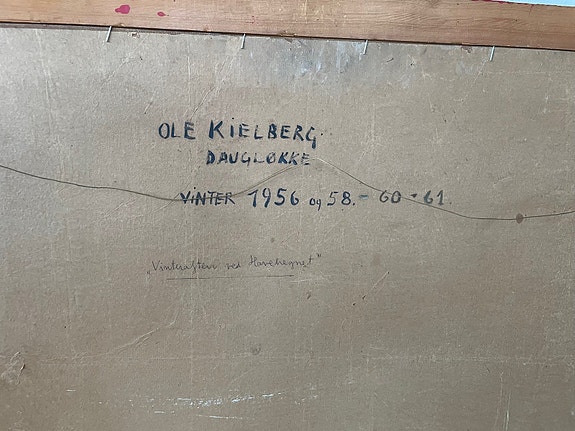 OLE KIELBERG
DAUGLØKKE
VINTER 1956 og 58. - 60 - 61.
"Vinteraften ved Havehegnet"